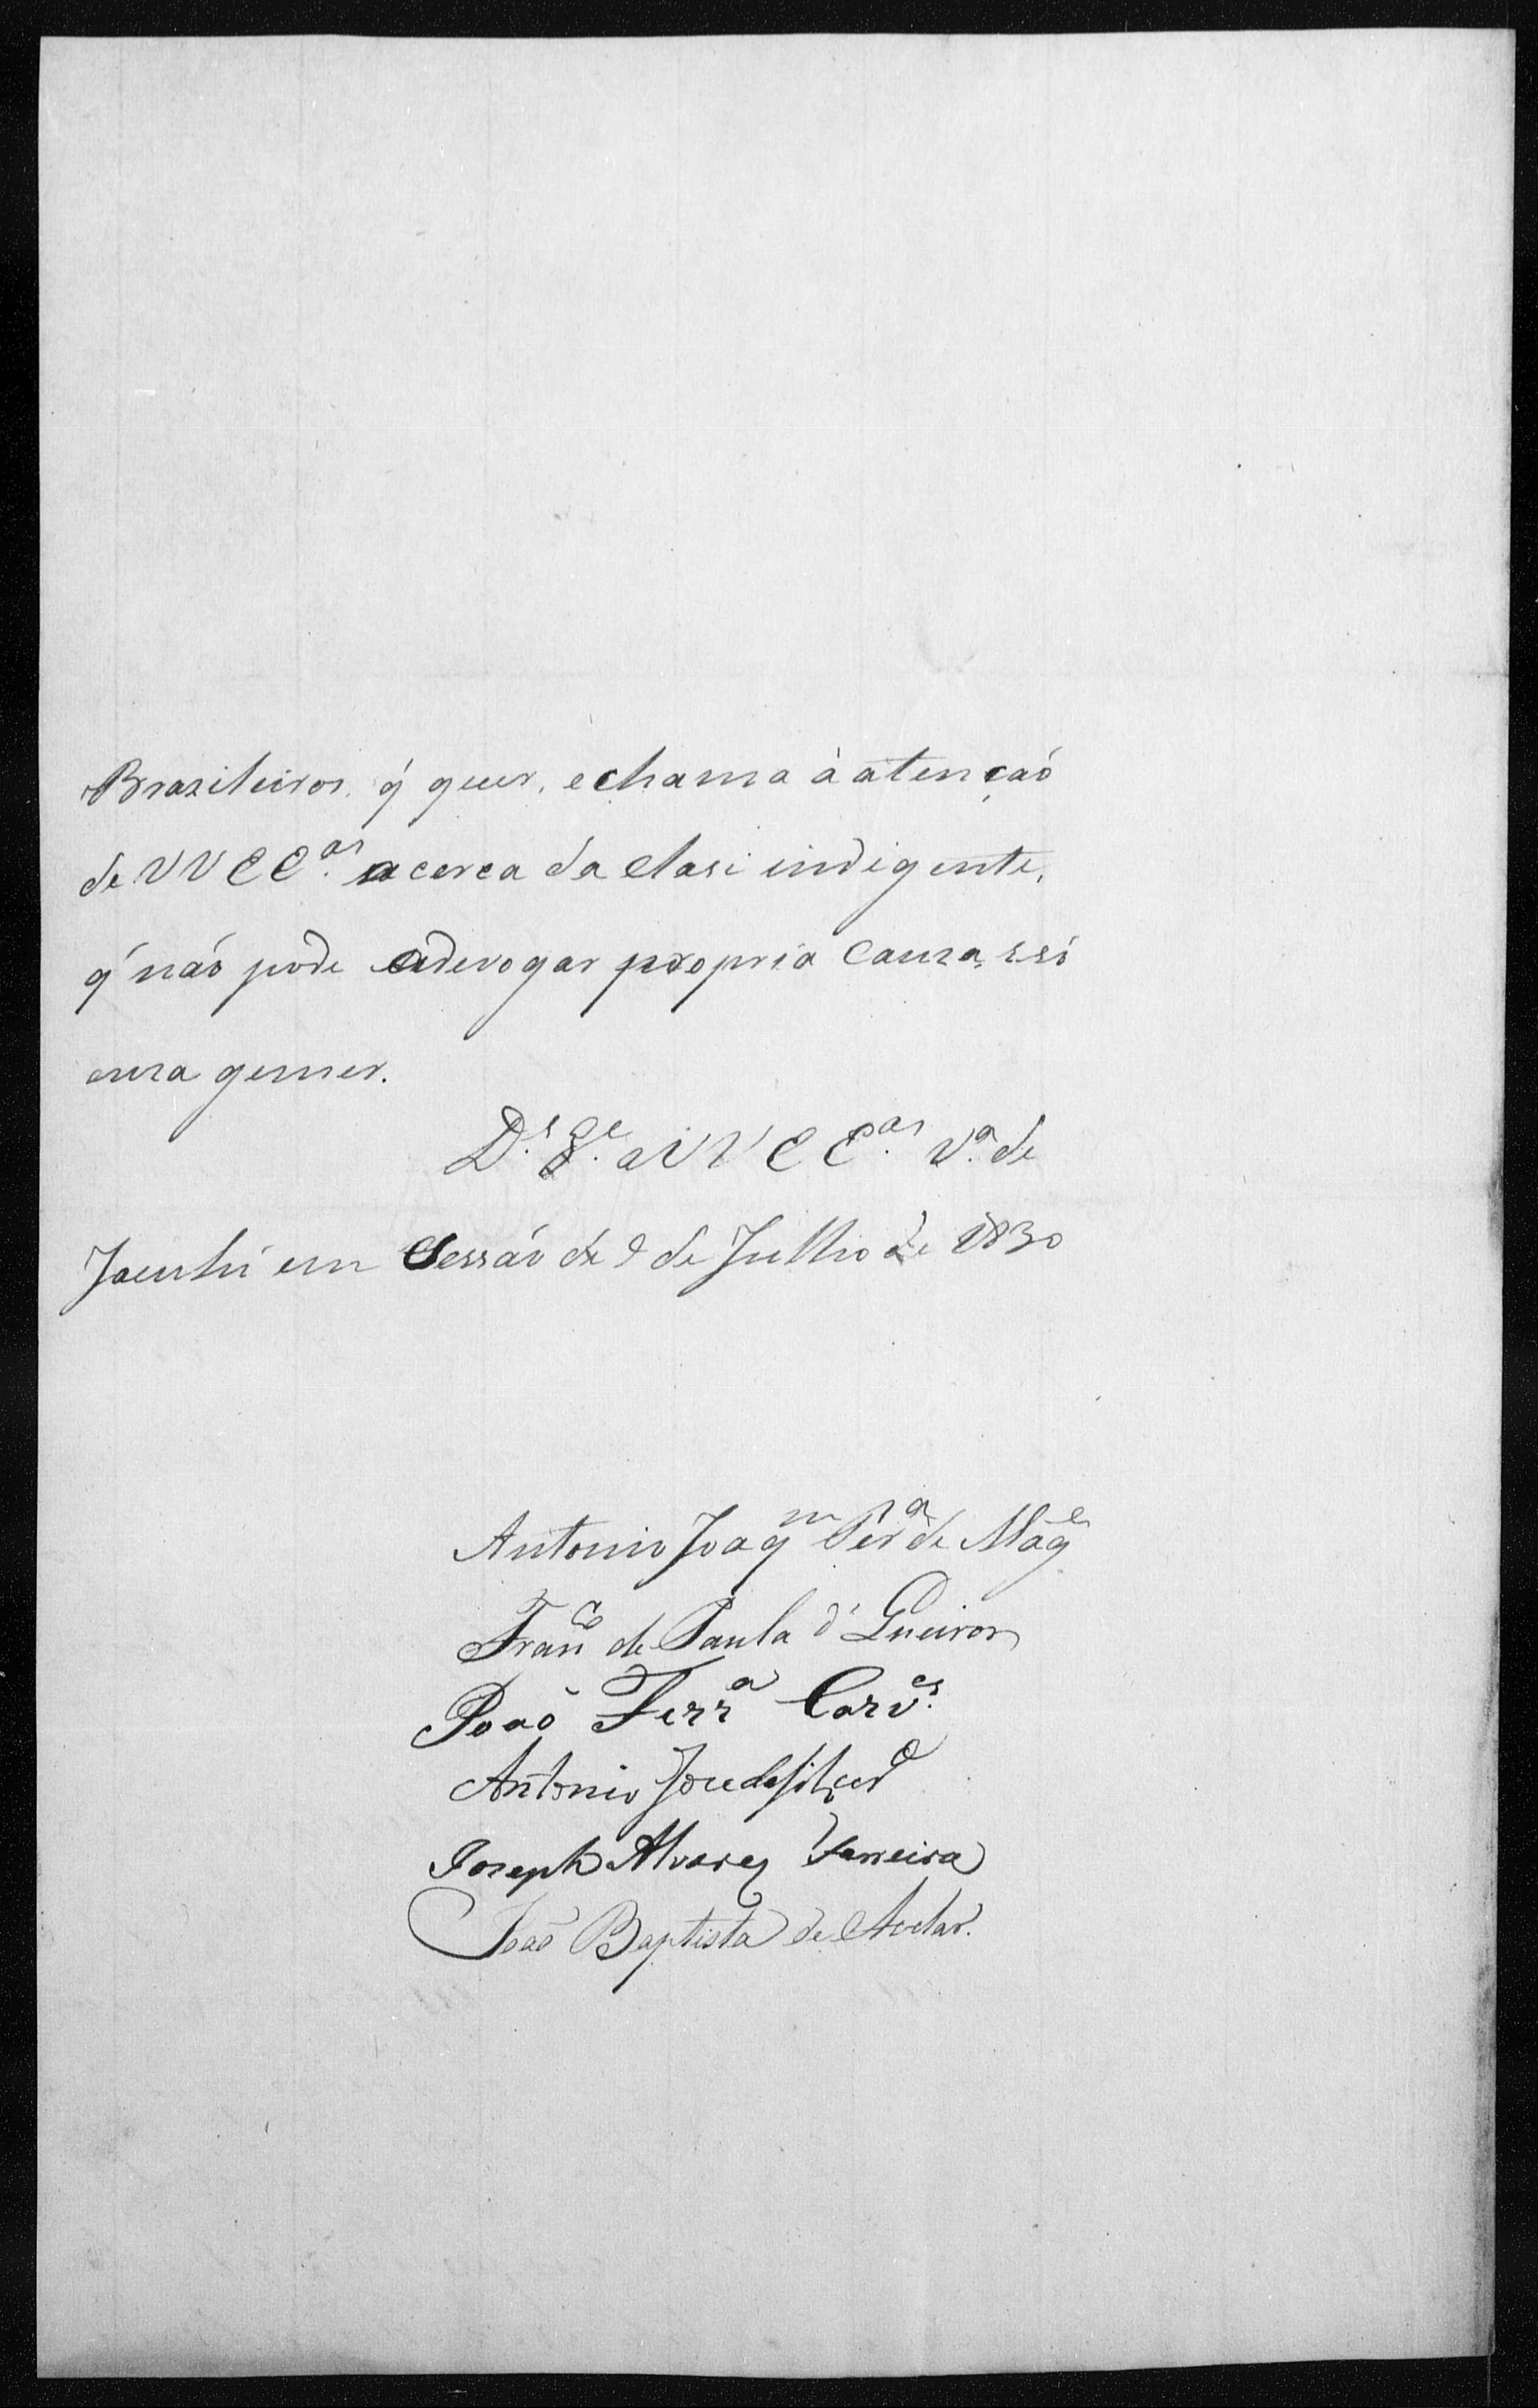 Brazileiros q̃ quer, e chama à atençaõ
de VVEEas. acerca da clase indigente,
q̃ naõ pode adevogar propria cauza, e só
uza gemer.
Ds. Ge. a VVEEas. Va. de
Jacuhi em Sessaõ de 9 de Julho de 1830
Antonio Joaqm Perª de Mage
Franco de Paula d'Queiros
Joaõ Ferrª Carvs.
Antonio
Joseph Alvarez Ferreira
Joaõ Baptista de Avelar.